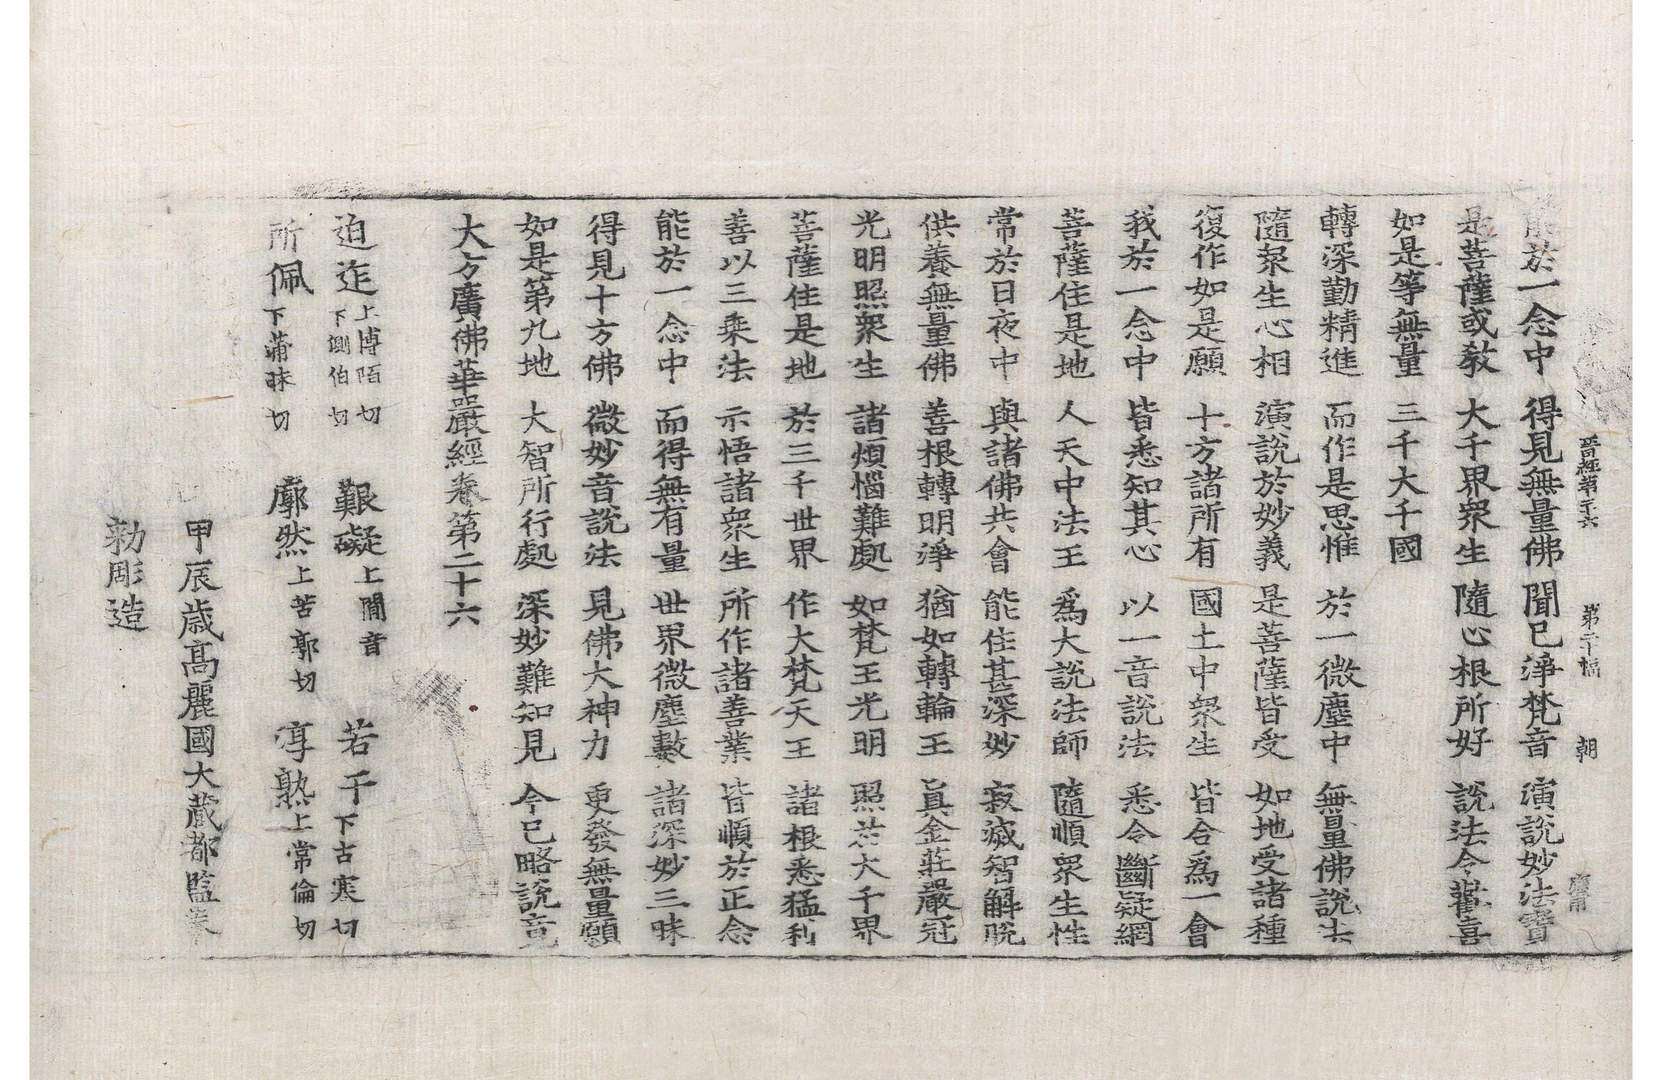 晉經第二十六 第二十幅 朝
能於一念中 得見無量佛 聞已淨梵音 演說妙法寶
是菩薩或教 大千界衆生 隨心根所好 說法令歡喜
如是等無量 三千大千國
轉深勤精進 而作是思惟 於一微塵中 無量佛說法
隨衆生心相 演說於妙義 是菩薩皆受 如地受諸種
復作如是願 十方諸所有 國土中衆生 皆合爲一會
我於一念中 皆悉知其心 以一音說法 悉令斷疑網
菩薩住是地 人天中法王 爲大說法師 隨順衆生性
常於日夜中 與諸佛共會 能住甚深妙 寂滅智解脫
供養無量佛 善根轉明淨 猶如轉輪王 眞金莊嚴冠
光明照衆生 諸煩惱難處 如梵王光明 照於大千界
菩薩住是地 於三千世界 作大梵天王 諸根悉猛利
善以三乘法 示悟諸衆生 所作諸善業 皆順於正念
能於一念中 而得無有量 世界微塵數 諸深妙三昧
得見十方佛 微妙音說法 見佛大神力 更發無量願
如是第九地 大智所行處 深妙難知見 今已略說竟
大方廣佛華嚴經卷第二十六
迫迮 上博陌切 下側伯切 艱礙 上閒音 若干 下古寒切
所佩 下蒲昧切 廓然 上苦郭切 淳熟 上常倫切
甲辰歲高麗國大藏都監奉
勑彫造